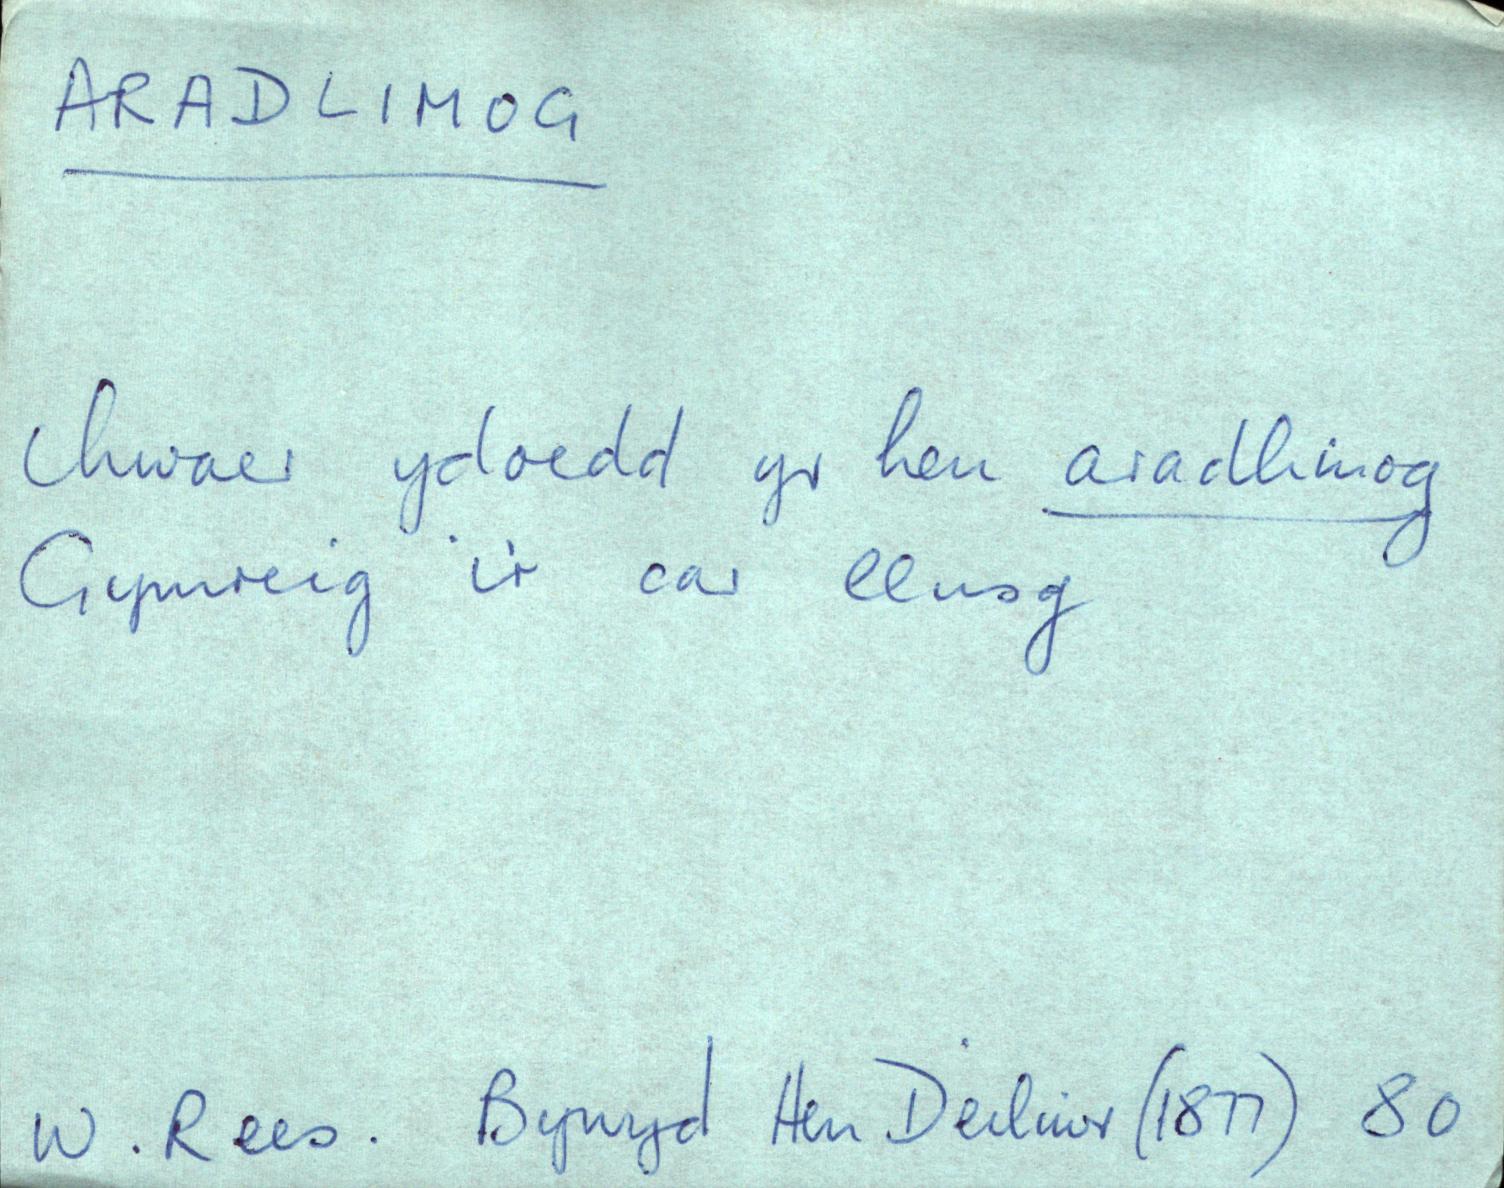 ARADLIMOG
Chwaer ydoedd yr hen aradlimog
Gymreig i'r car llusg
W. Rees. Bywyd Hen Deiliwr (1877) 80